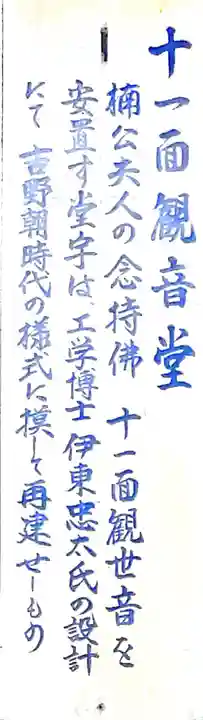 十一面観音堂
楠公夫人の念持佛 十一面観世音を
安置す堂宇は、工学博士伊東忠太氏の設計
にて 吉野朝時代の様式に摸して再建せしもの